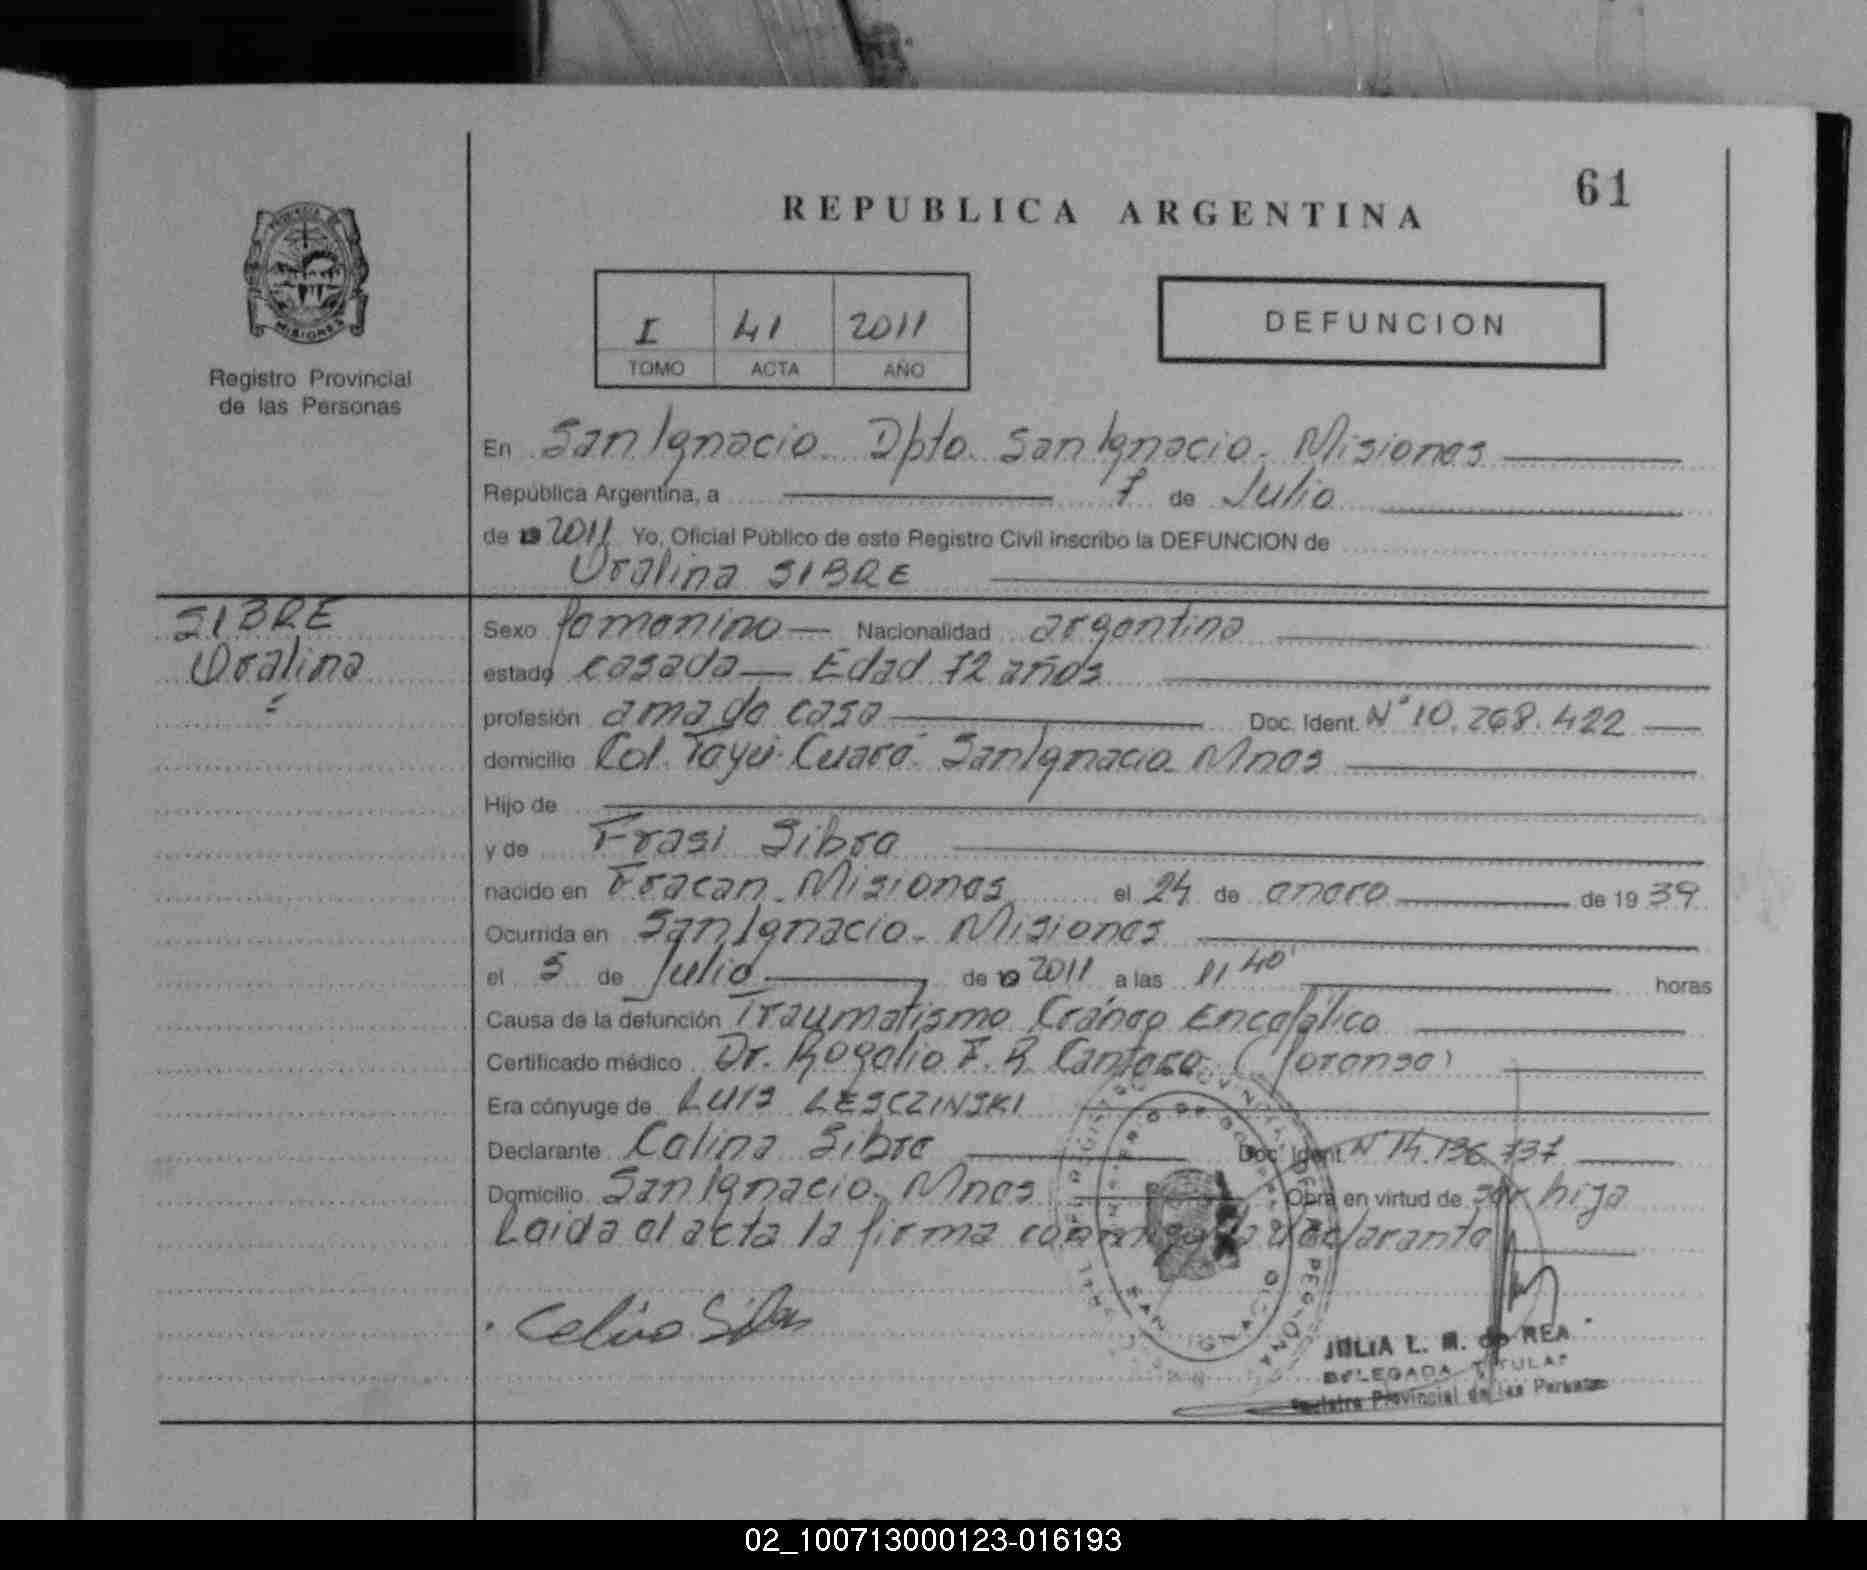 61
REPUBLICA ARGENTINA
PROVINCIA DE
MISIONES
Registro Provincial
de las Personas
I 41 2011
TOMO ACTA AÑO
DEFUNCION
En San Ignacio. Dpto. San Ignacio. Misiones
República Argentina, a 7 de Julio
de 19 2011 Yo, Oficial Público de este Registro Civil inscribo la DEFUNCION de
Oralina SIBRE
SIBRE
Oralina
Sexo femenino Nacionalidad argentina
estado casada Edad 72 años
profesión ama de casa Doc. Ident. Nº 10.268.422
domicilio Col. Tayú-Cuaré San Ignacio Mnes
Hijo de
y de Frasi Sibre
nacido en Fracan. Misiones el 24 de enero de 19 39
Ocurrida en San Ignacio. Misiones
el 5 de Julio de 19 2011 a las 11 40' horas
Causa de la defunción Traumatismo Cráneo Encefálico
Certificado médico Dr. Rogelio F. R. Cantero (forense)
Era cónyuge de LUIS LESCZINSKI
Declarante Celina Sibre Doc. Ident. Nº 14.136.737
Domicilio San Ignacio. Mnes Obra en virtud de ser hija
Leida el acta la firma conmigo la declarante
Celina Sibre
JULIA L. M. de REA
DELEGADA TITULAR
Registro Provincial de las Personas
02_100713000123-016193